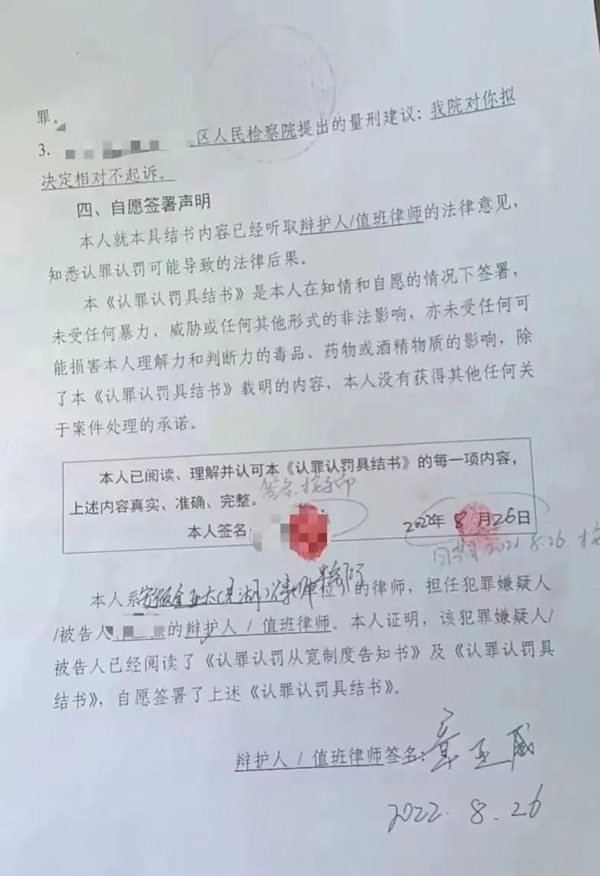 罪。
3. 区人民检察院提出的量刑建议：我院对你拟
决定相对不起诉。
四、自愿签署声明
本人就本具结书内容已经听取辩护人/值班律师的法律意见，
知悉认罪认罚可能导致的法律后果。
本《认罪认罚具结书》是本人在知情和自愿的情况下签署，
未受任何暴力、威胁或任何其他形式的非法影响，亦未受任何可
能损害本人理解力和判断力的毒品、药物或酒精物质的影响，除
了本《认罪认罚具结书》载明的内容，本人没有获得其他任何关
于案件处理的承诺。
本人已阅读、理解并认可本《认罪认罚具结书》的每一项内容，
上述内容真实、准确、完整。
签名 按手印
本人签名： 2022年 8 月26日
日期 2022.8.26
本人系安徽金亚太(芜湖)律师事务所的律师，担任犯罪嫌疑人
/被告人 的辩护人 / 值班律师。本人证明，该犯罪嫌疑人/
被告人已经阅读了《认罪认罚从宽制度告知书》及《认罪认罚具
结书》，自愿签署了上述《认罪认罚具结书》。
辩护人 / 值班律师签名：章
2022.8.26